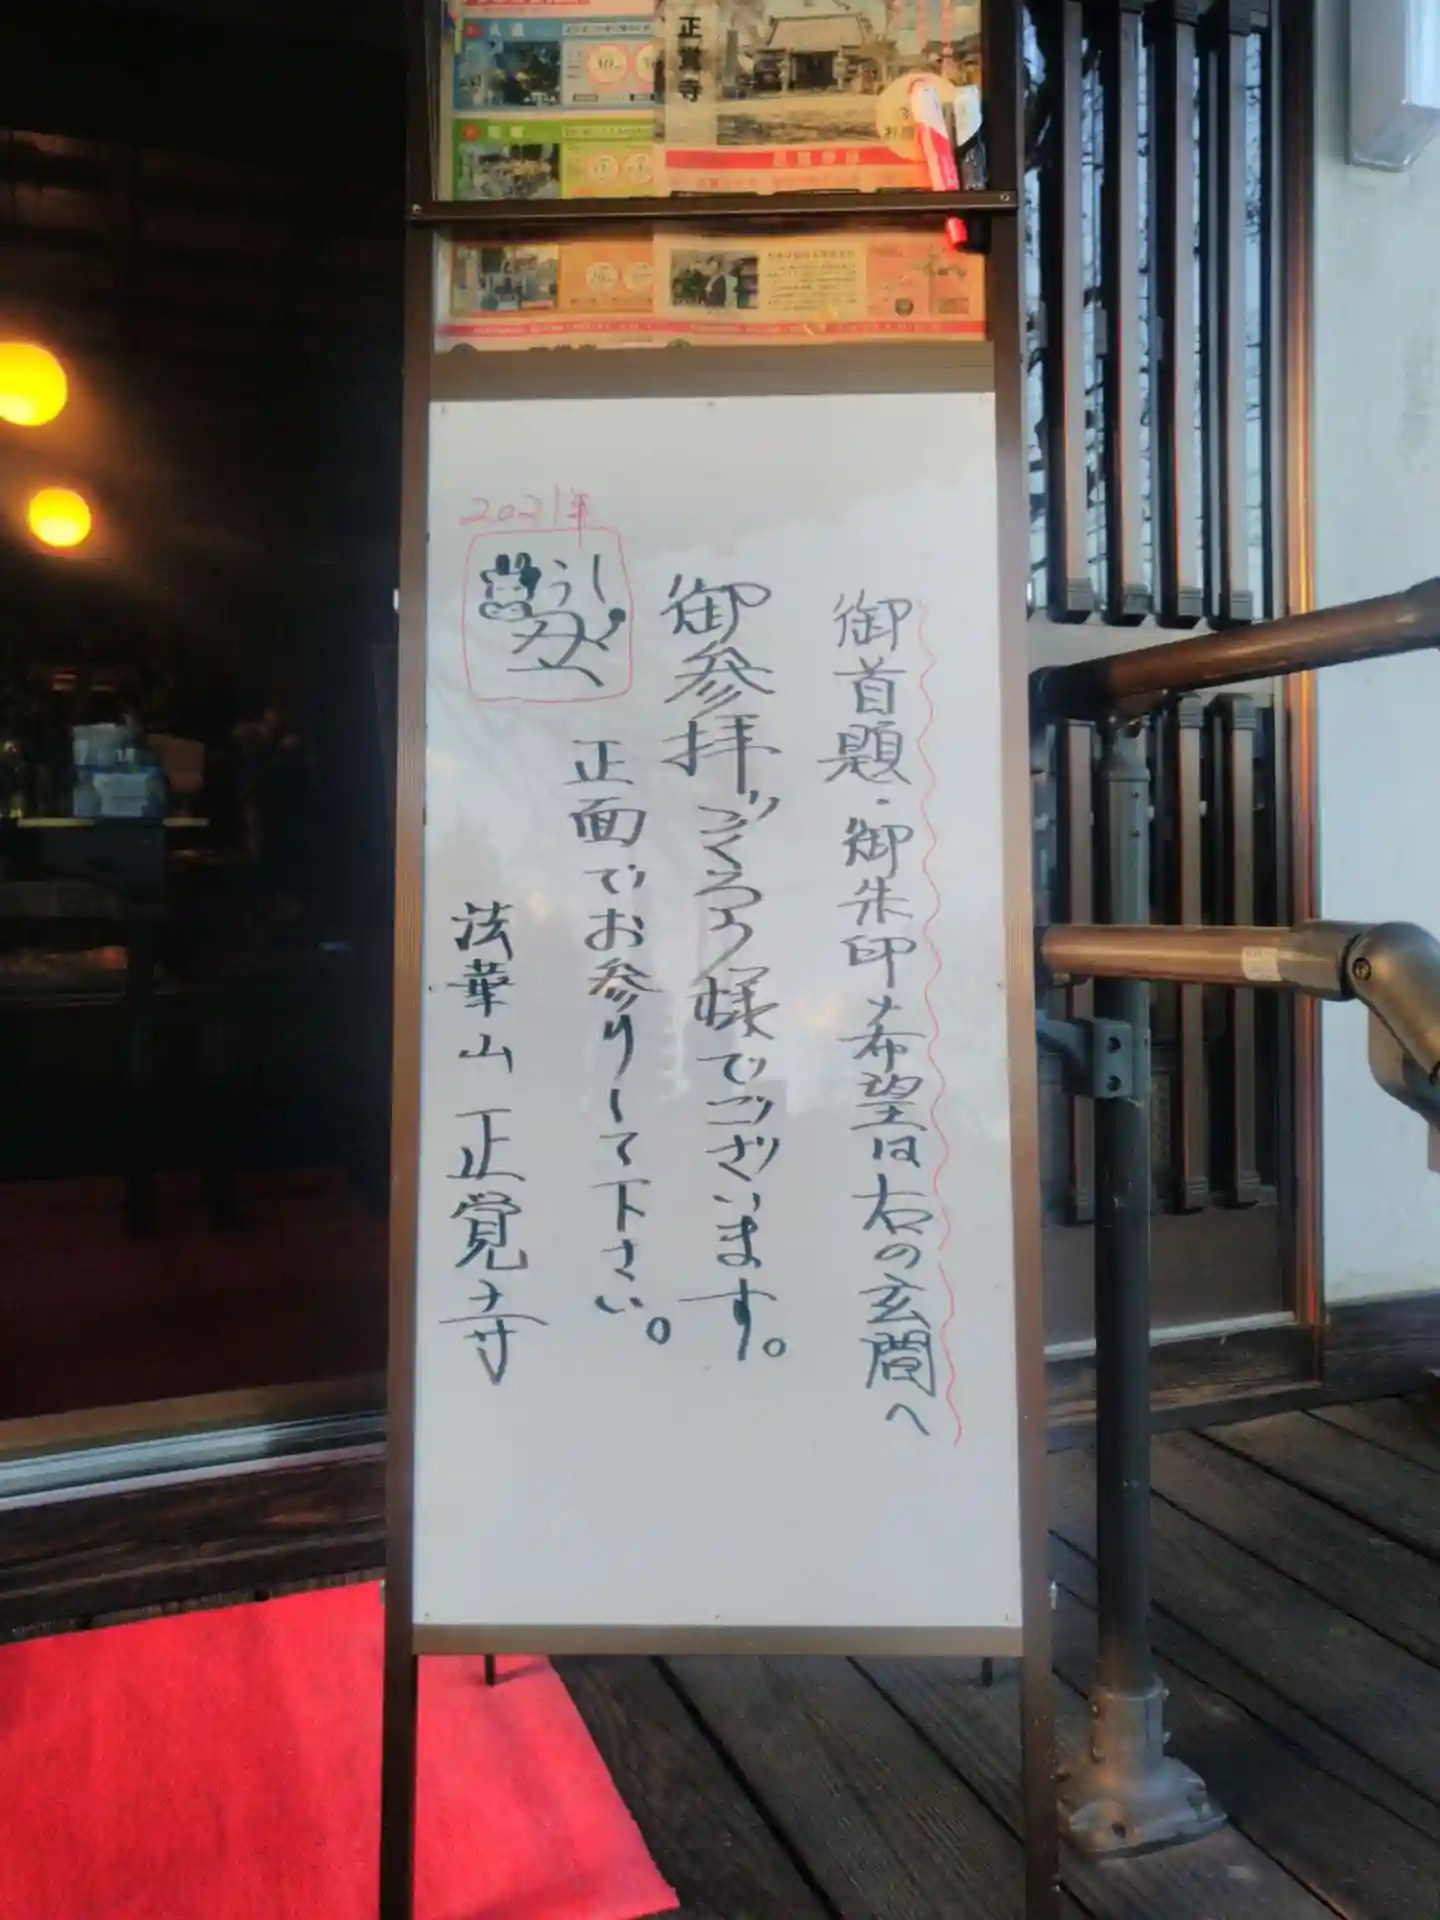 正覚寺
御首題・御朱印希望は右の玄関へ
御参拝ごくろう様でございます。
正面でお参りして下さい。
2021年
うし
法華山 正覚寺